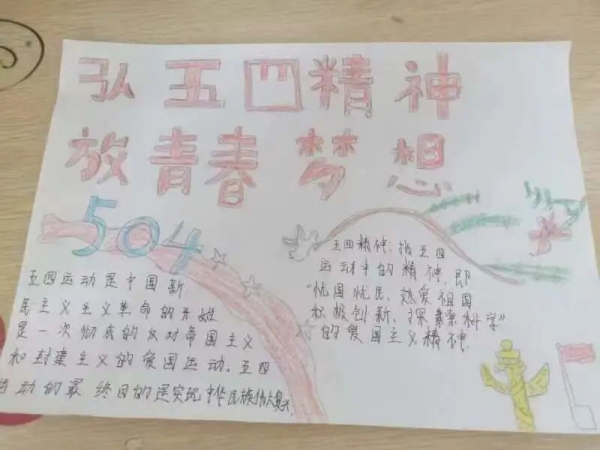 弘五四精神
放青春梦想
504
五四运动是中国新
民主义主义革命的开始
是一次彻底的反对帝国主义
和封建主义的爱国运动，五四
运动的最终目的是实现中华民族伟大复兴
五四精神：指五四
运动中的精神，即
“忧国忧民、热爱祖国
积极创新、探索科学”
的爱国主义精神.